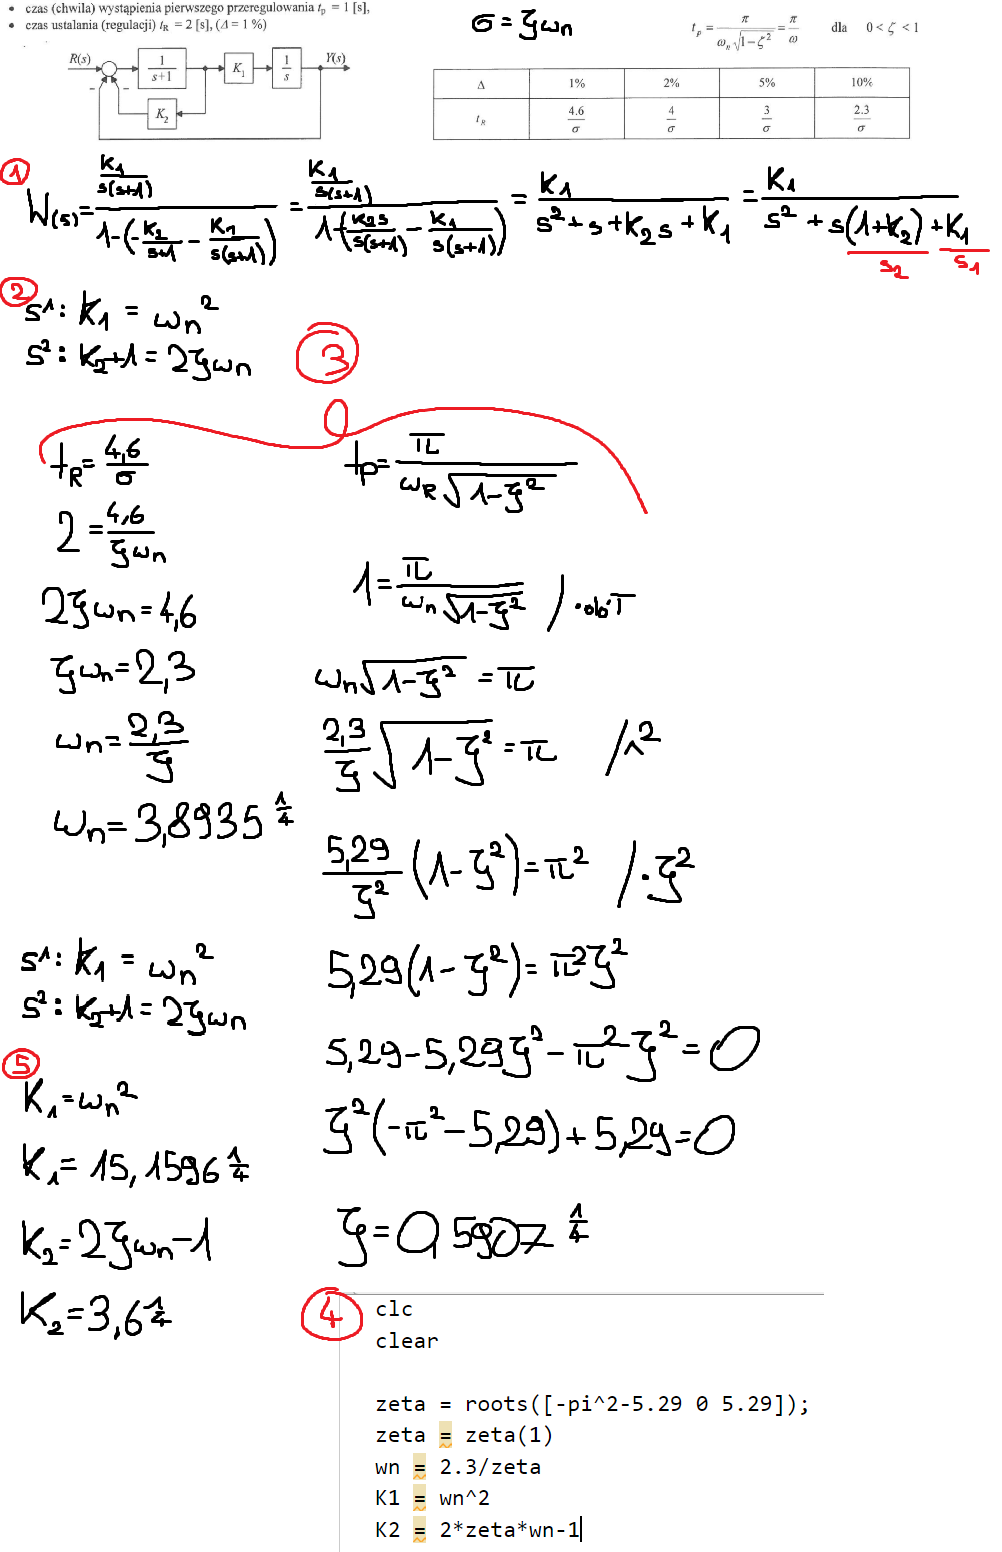 • czas (chwila) wystąpienia pierwszego przeregulowania tₚ = 1 [s],
• czas ustalania (regulacji) t_R = 2 [s], (Δ = 1 %)
σ = ζωn
tₚ = π / (ωₙ √(1−ζ²)) = π / ω dla 0 < ζ < 1
R(s) 1/(s+1) K₁ 1/s Y(s)
− −
K₂
Δ 1% 2% 5% 10%
t_R 4.6/σ 4/σ 3/σ 2.3/σ
1
W(s) = (K1/(s(s+1))) / (1−(−K2/(s+1) − K1/(s(s+1)))) = (K1/(s(s+1))) / (1+(K2s/(s(s+1)) − K1/(s(s+1)))) = K1 / (s²+s+K2s+K1) = K1 / (s²+s(1+K2)+K1)
s2 s1
2
s¹: K1 = ωn²
s²: K2+1 = 2ζωn
3
tR = 4,6/σ
2 = 4,6/(ζωn)
2ζωn = 4,6
ζωn = 2,3
ωn = 2,3/ζ
ωn = 3,8935 1/4
tp = π / (ωR √(1−ζ²))
1 = π / (ωn √(1−ζ²)) / ·obT
ωn √(1−ζ²) = π
2,3/ζ √(1−ζ²) = π /^2
5,29/ζ² (1−ζ²) = π² / ·ζ²
5,29(1−ζ²) = π²ζ²
5,29−5,29ζ²−π²ζ² = 0
ζ²(−π²−5,29)+5,29 = 0
ζ = 0,5907 1/4
s¹: K1 = ωn²
s²: K2+1 = 2ζωn
5
K1 = ωn²
K1 = 15,1596 1/4
K2 = 2ζωn−1
K2 = 3,6 1/4
4
clc
clear
zeta = roots([-pi^2-5.29 0 5.29]);
zeta = zeta(1)
wn = 2.3/zeta
K1 = wn^2
K2 = 2*zeta*wn-1